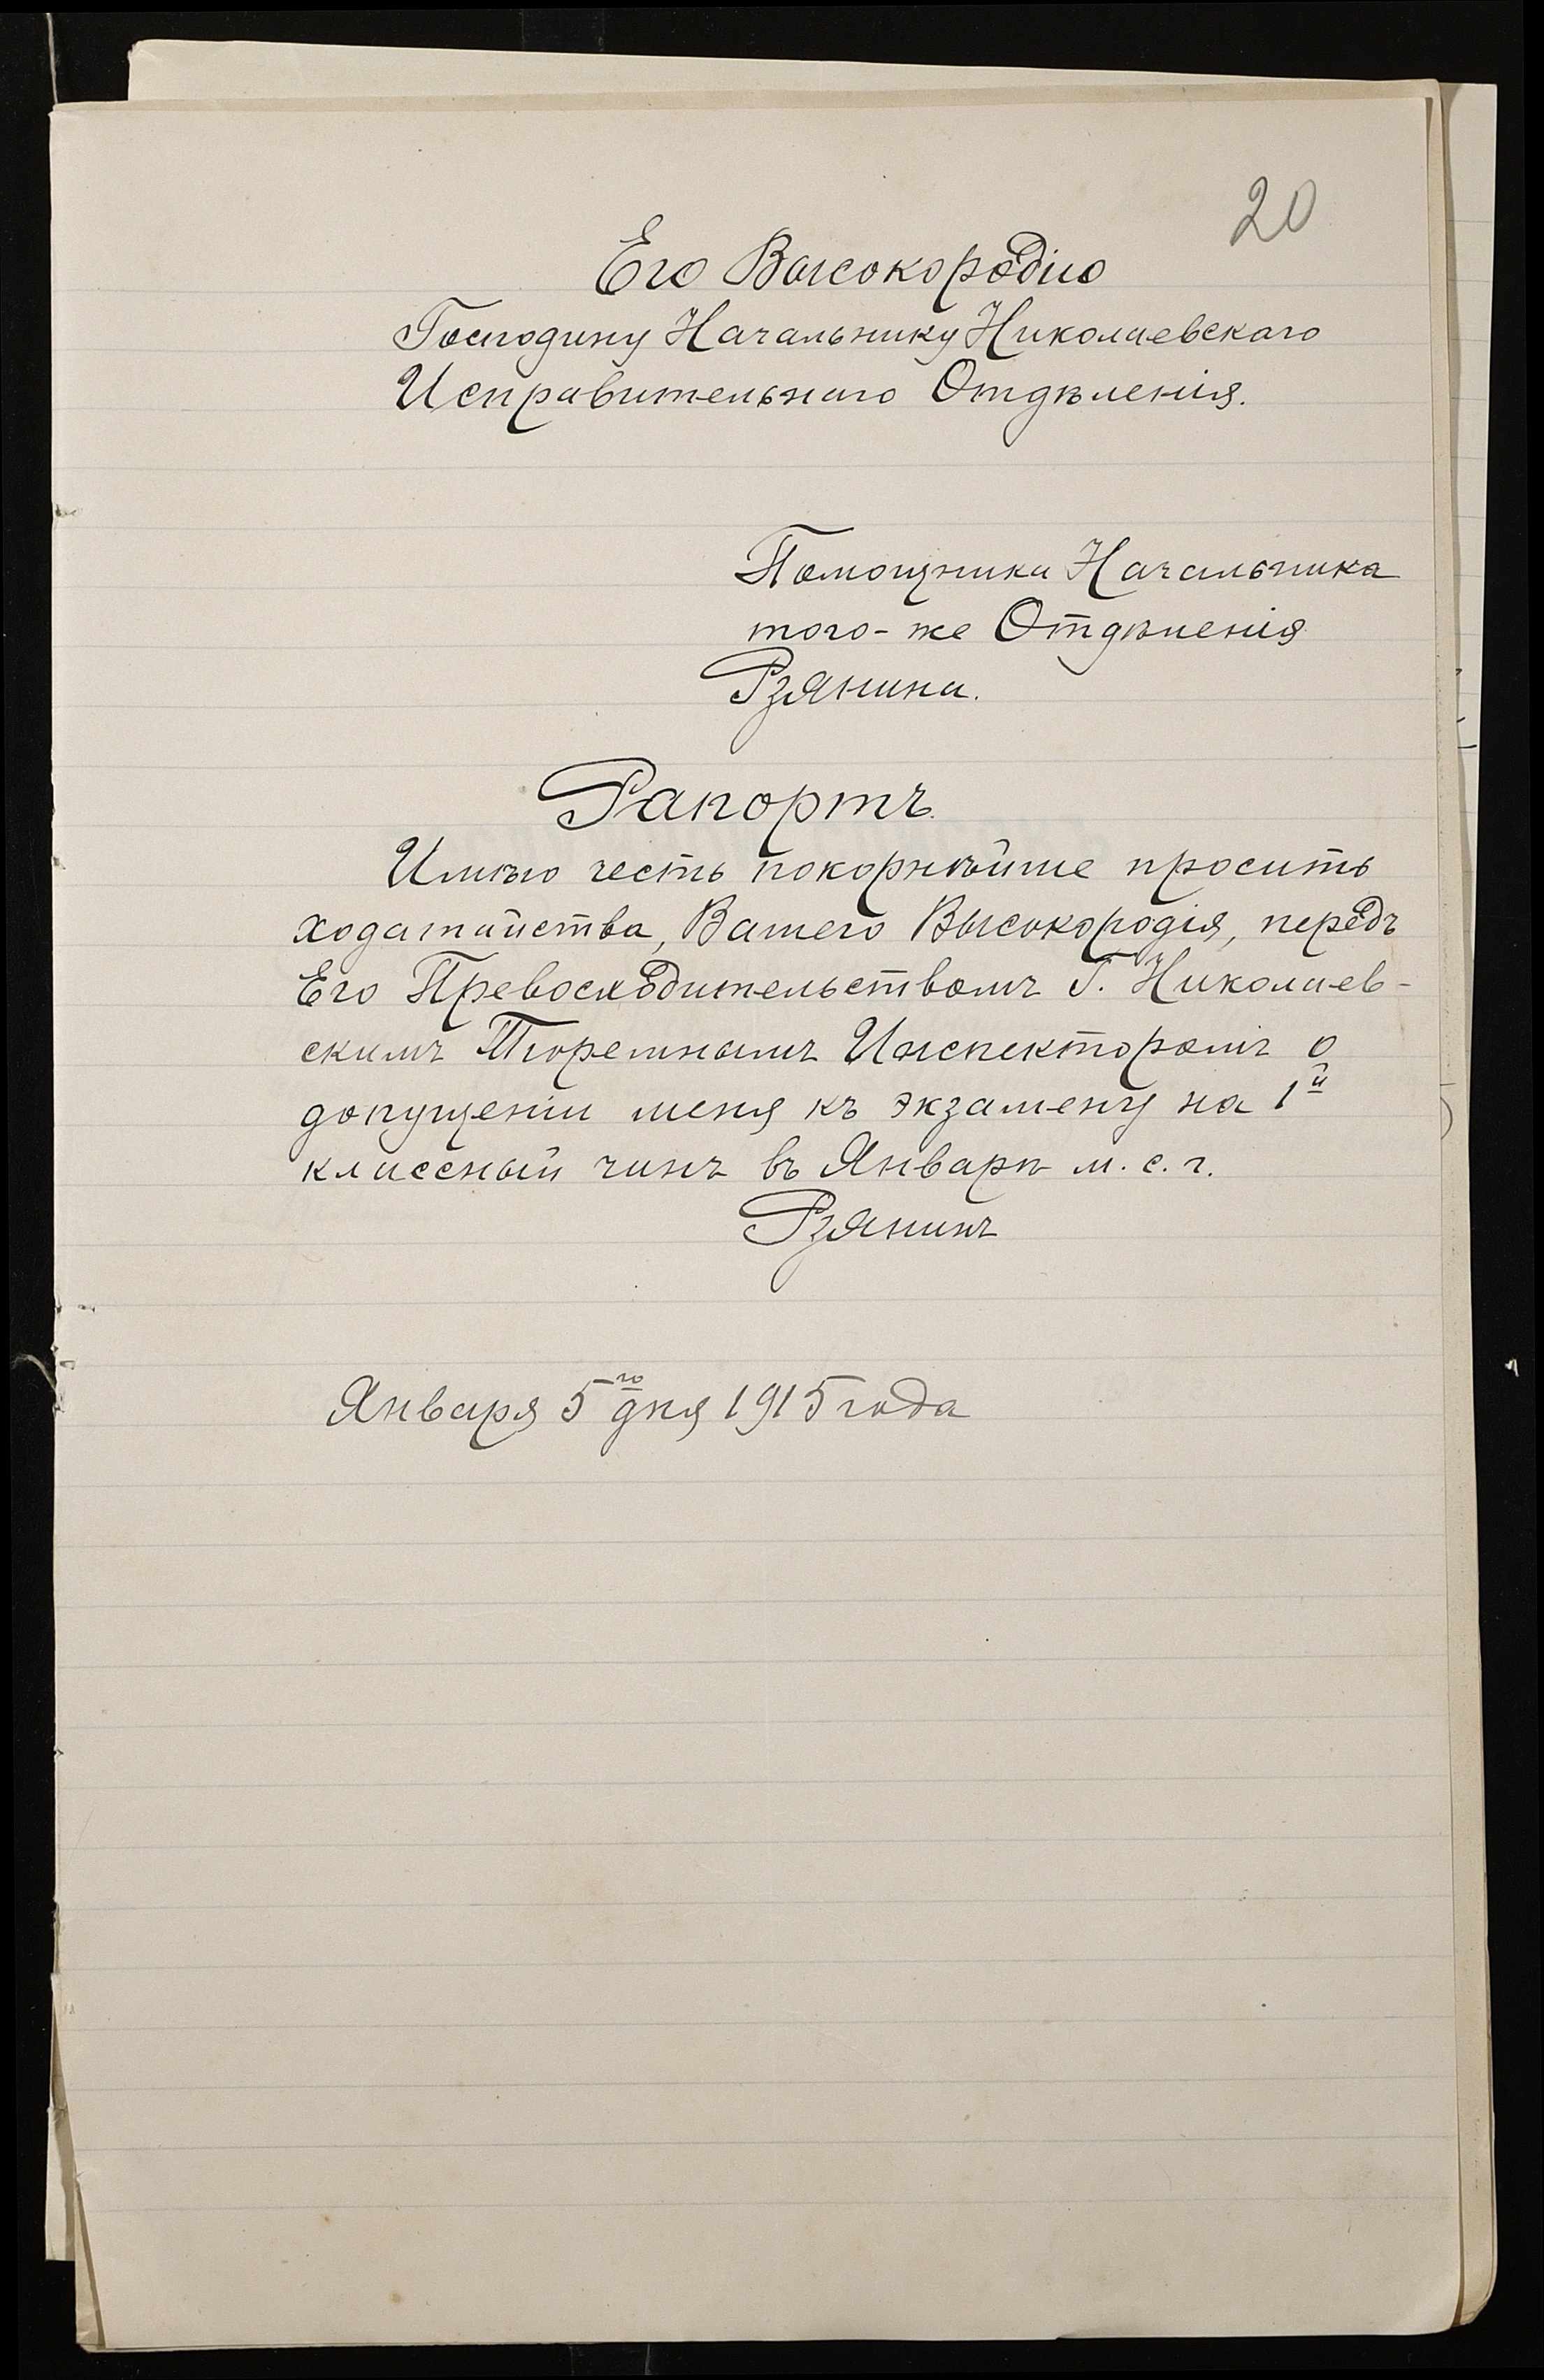 20
Его Высокородію
Господину Начальнику Николаевскаго
Исправительнаго Отдѣленія.
Помощника Начальника
того-же Отдѣленія
Рзянина.
Рапортъ.
Имѣю честь покорнѣйше просить
ходатайства, Вашего Высокородія, передъ
Его Превосходительствомъ Г. Николаев-
скимъ Тюремнымъ Инспекторомъ о
допущеніи меня къ экзамену на 1й
классный чинъ въ Январѣ м. с. г.
Рзянинъ
Января 5го дня 1915 года